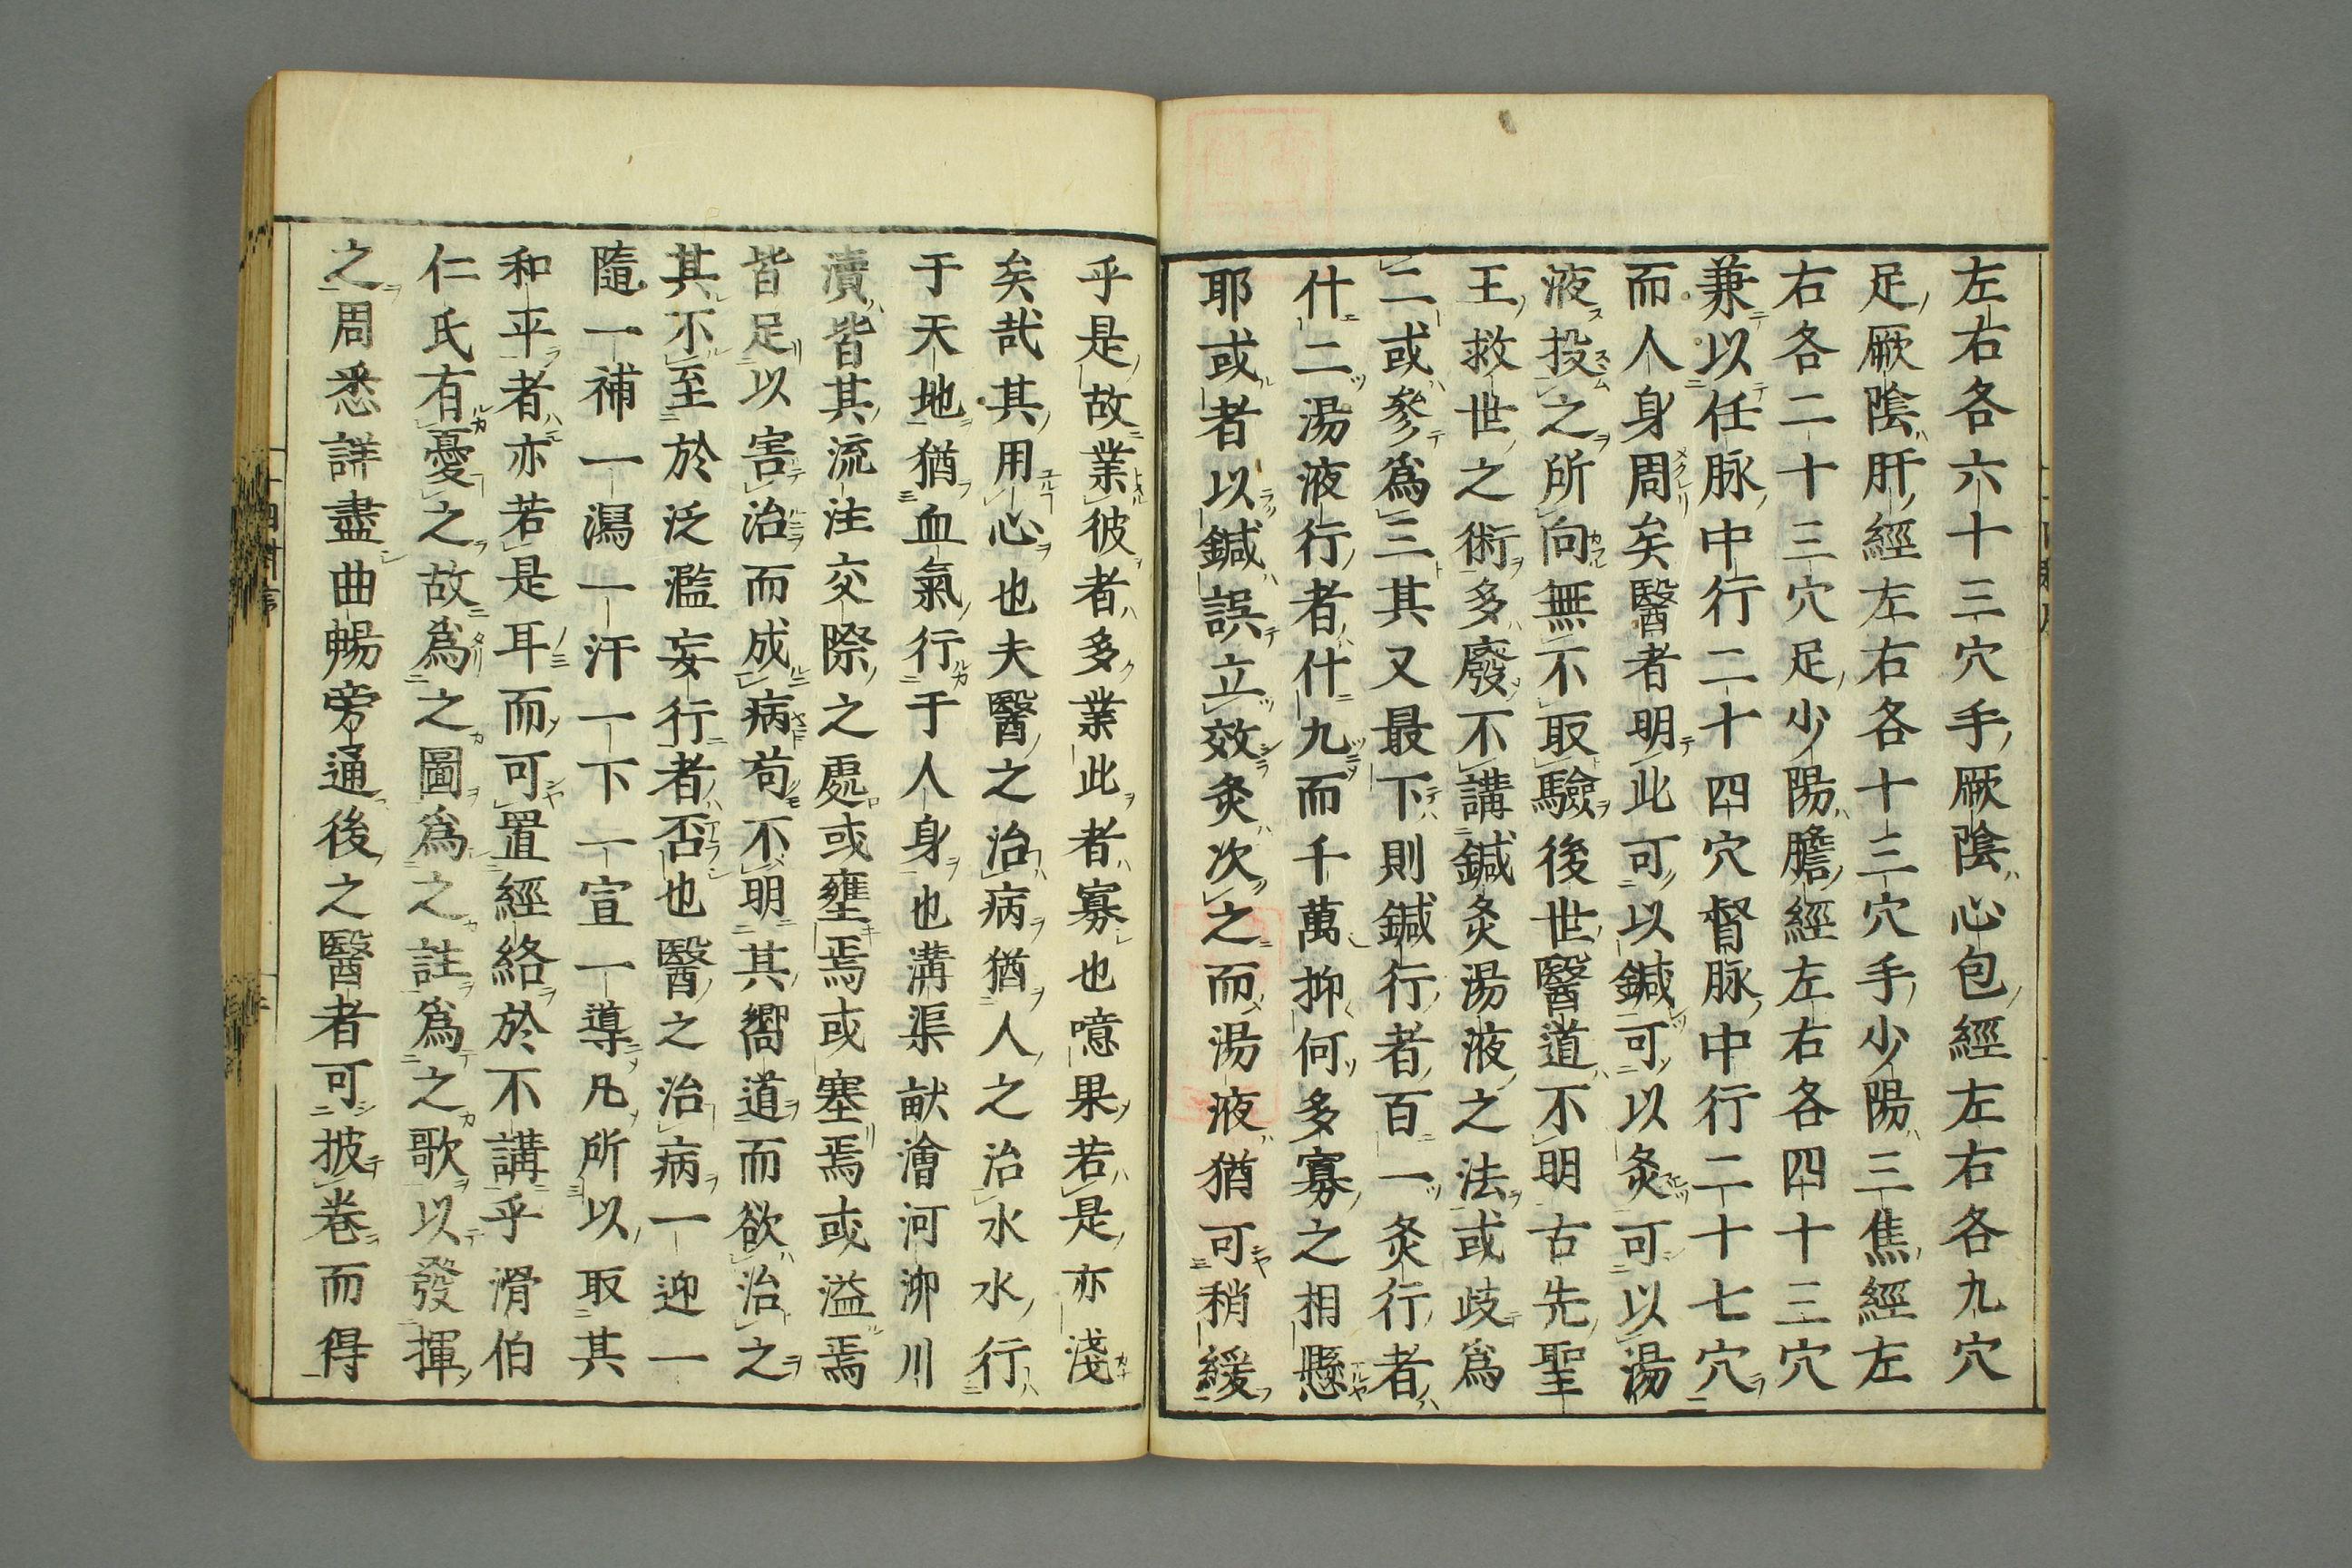 左右各六十三穴手厥陰心包經左右各九穴
足厥陰肝經左右各十三穴手少陽三焦經左
右各二十三穴足少陽膽經左右各四十三穴
兼以任脉中行二十四穴督脉中行二十七穴
而人身周矣醫者明此可以鍼可以灸可以湯
液投之所向無不取驗後世醫道不明古先聖
王救世之術多廢不講鍼灸湯液之法或歧爲
二或參爲三其又最下則鍼行者百一灸行者
什二湯液行者什九而千萬抑何多寡之相懸
耶或者以鍼誤立效灸次之而湯液猶可稍緩
乎是故業彼者多業此者寡也噫果若是亦淺
矣哉其用心也夫醫之治病猶人之治水水行
于天地猶血氣行于人身也溝渠畎澮河泖川
瀆皆其流注交際之處或壅焉或塞焉或溢焉
皆足以害治而成病苟不明其嚮道而欲治之
其不至於泛濫妄行者否也醫之治病一迎一
隨一補一瀉一汗一下一宣一導凡所以取其
和平者亦若是耳而可置經絡於不講乎滑伯
仁氏有憂之故爲之圖爲之註爲之歌以發揮
之周悉詳盡曲暢旁通後之醫者可披卷而得